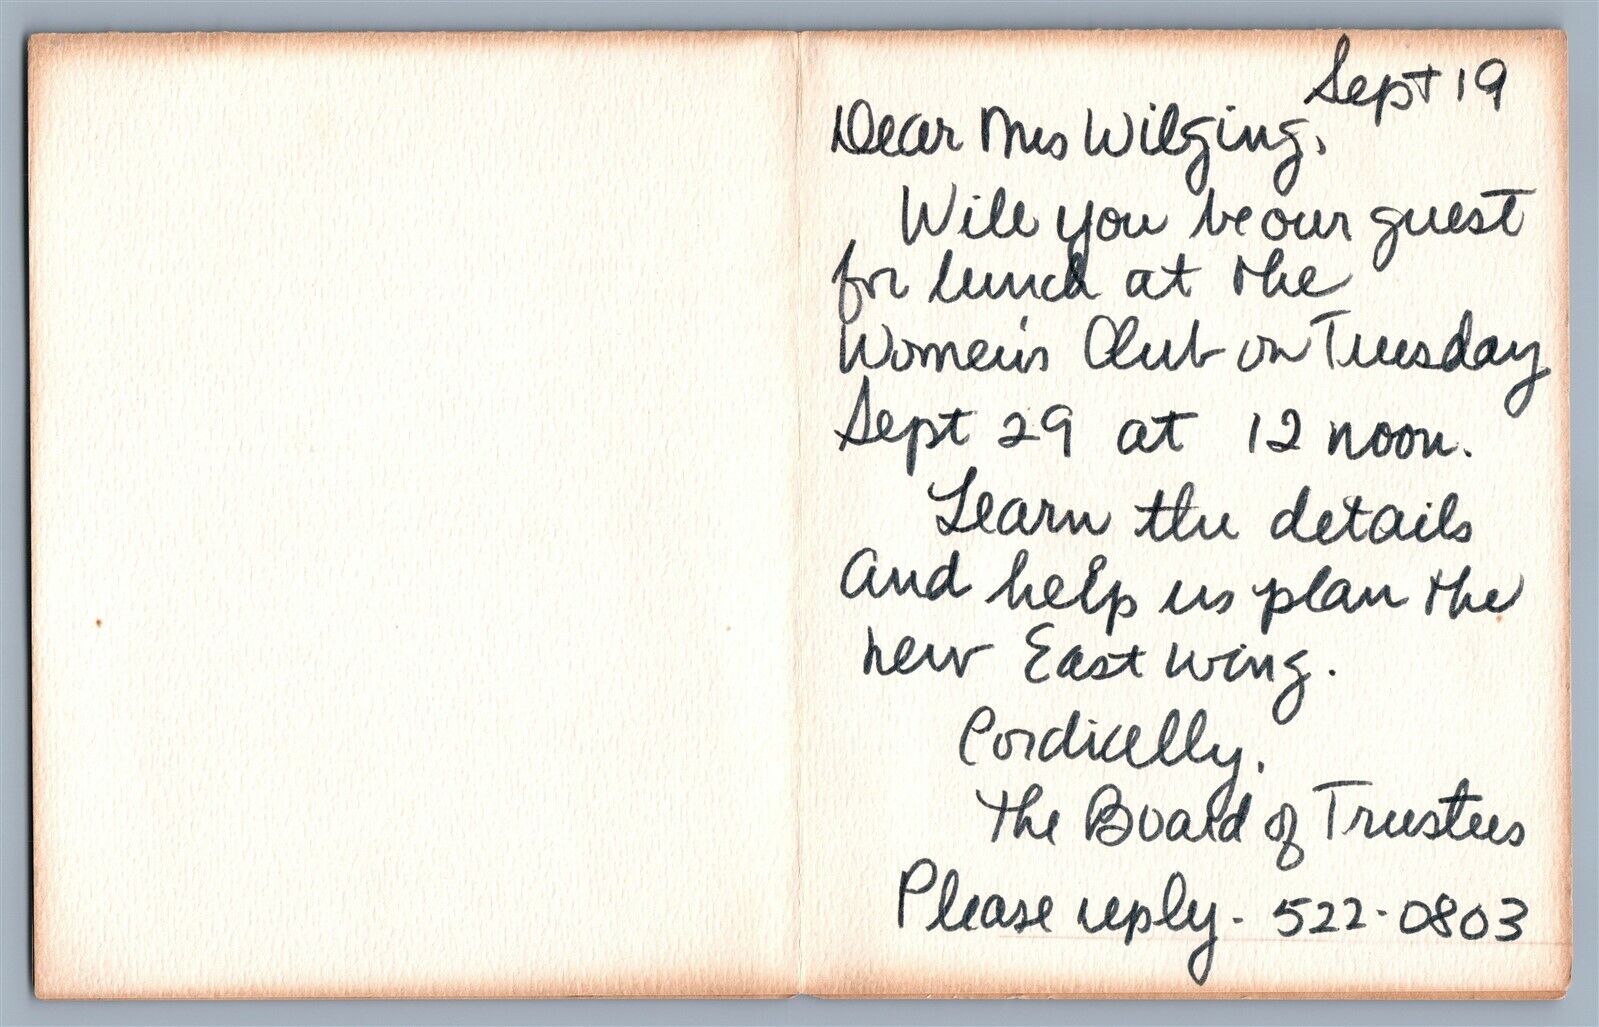 Sept 19
Dear Mrs Wilging,
Will you be our guest
for lunch at the
Women's Club on Tuesday
Sept 29 at 12 noon.
Learn the details
and help us plan the
new East wing.
Cordially,
The Board of Trustees
Please reply - 522-0803